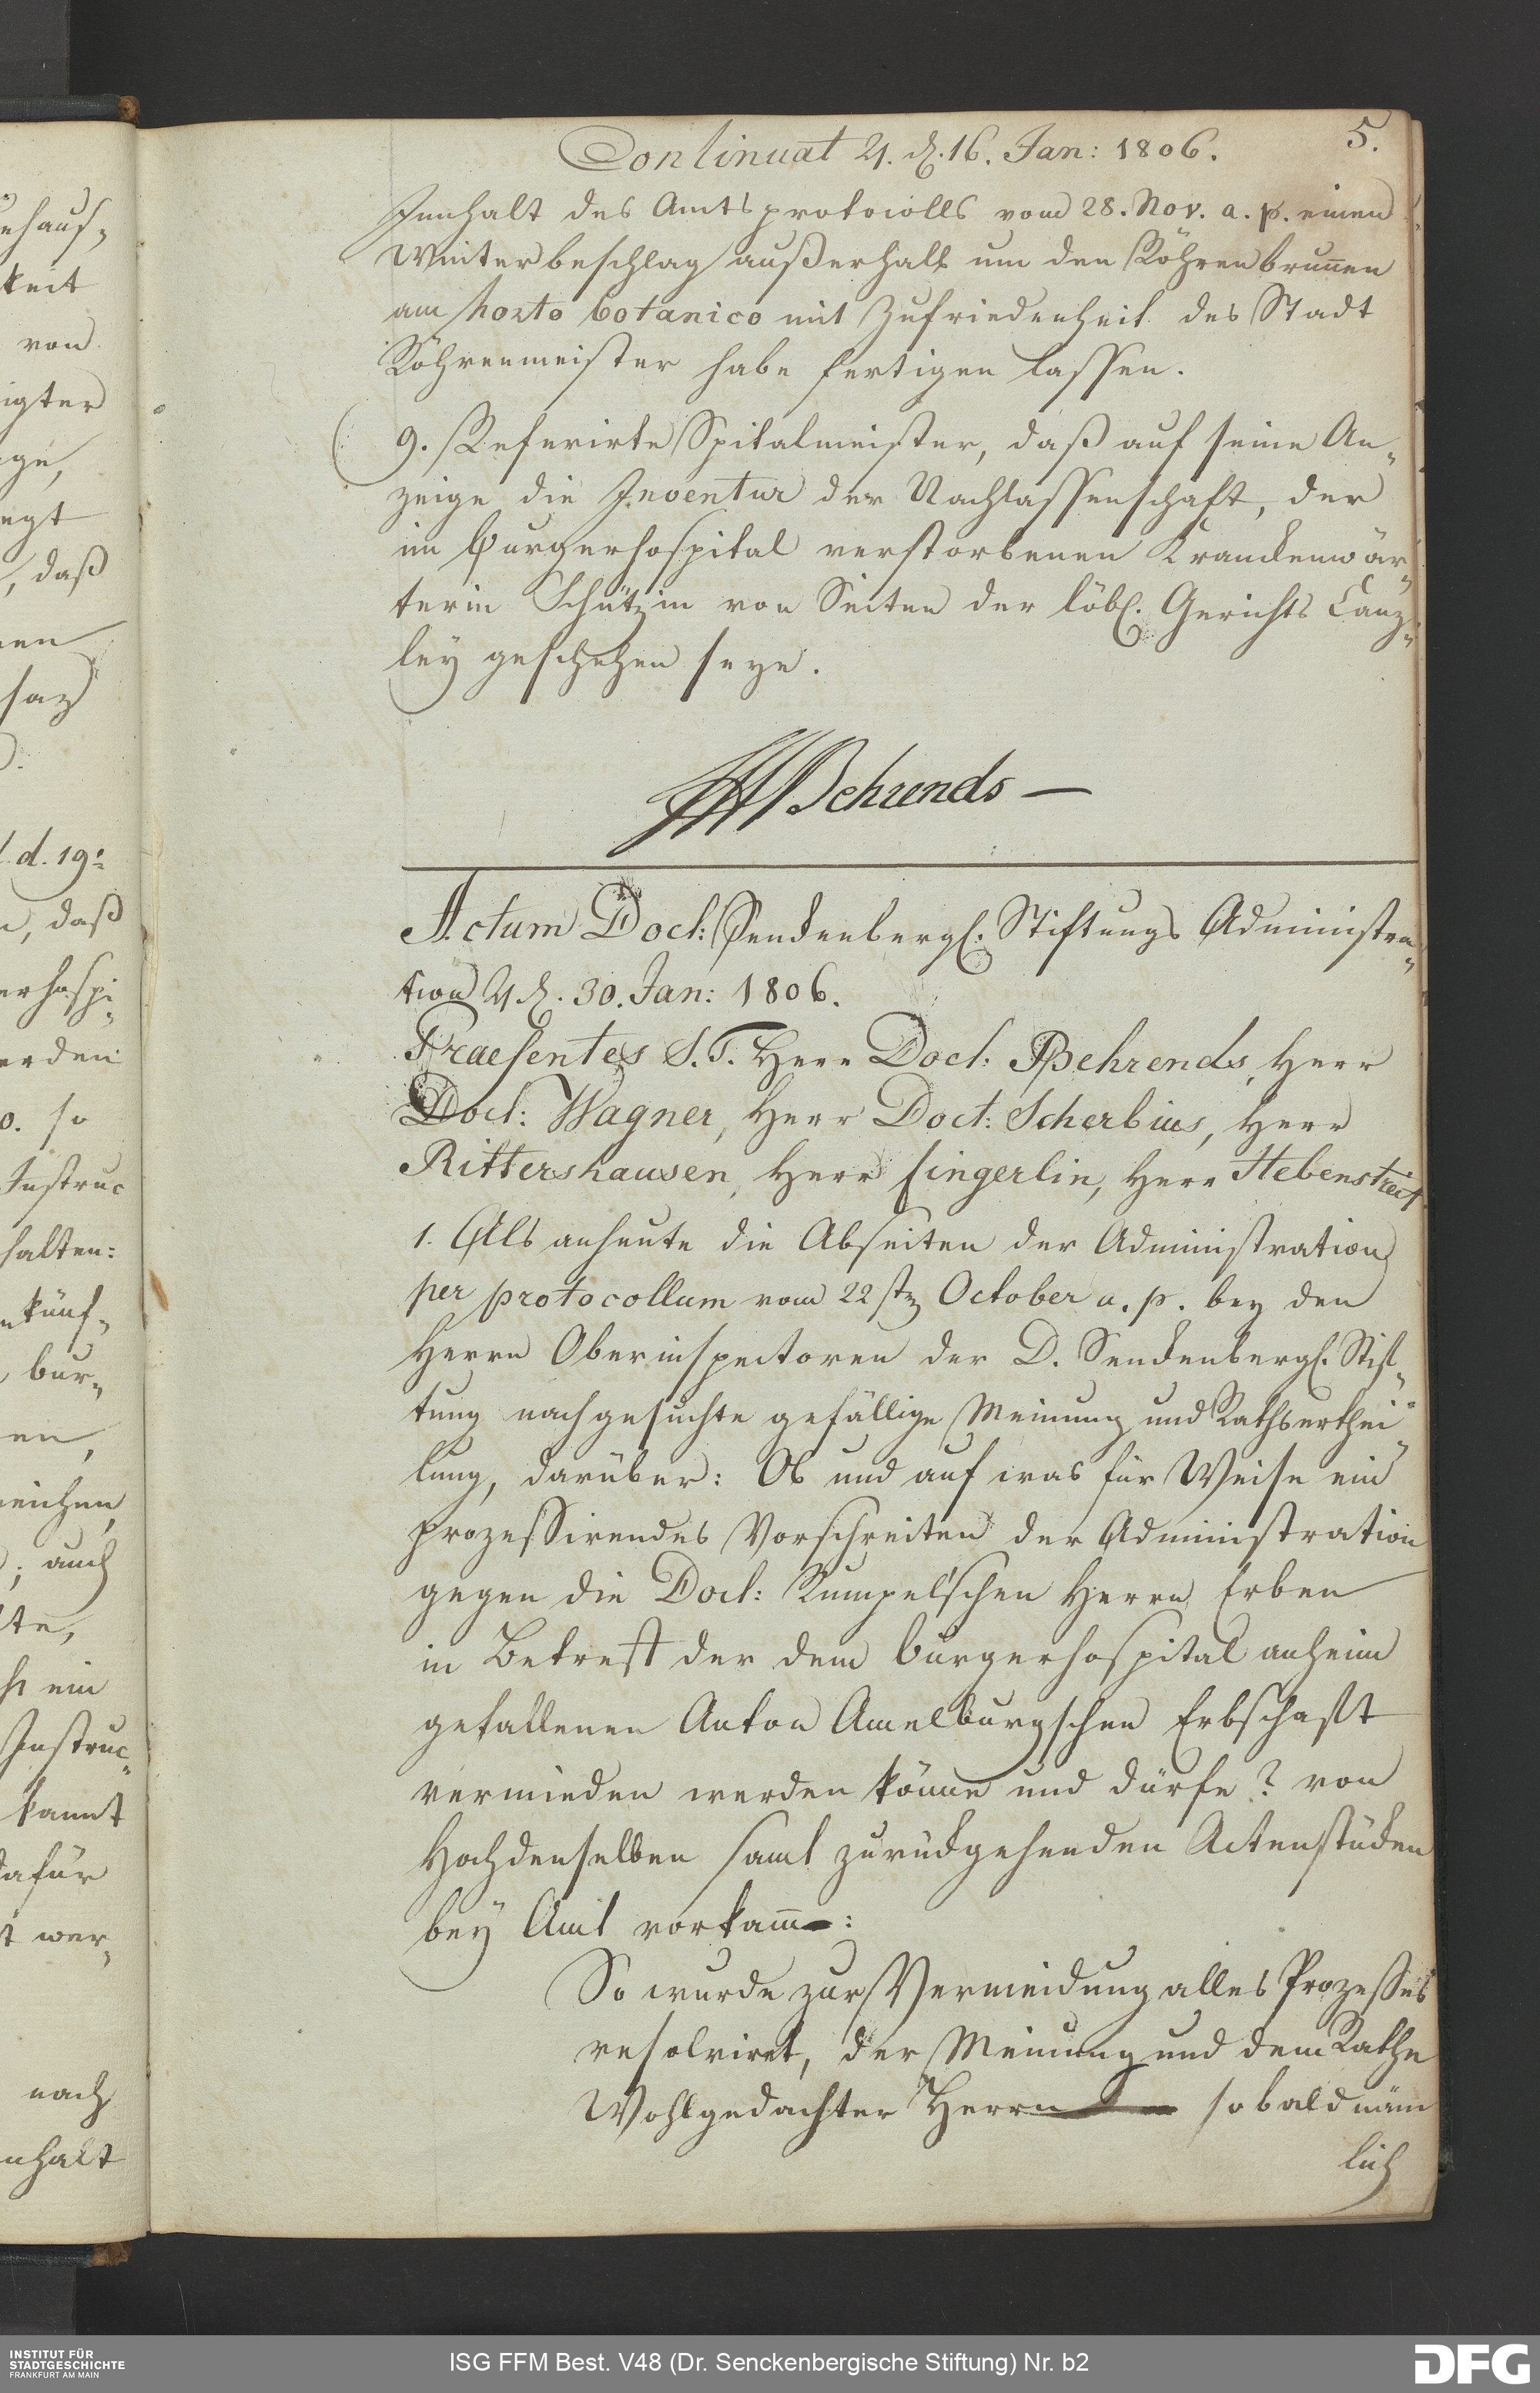 ehaus„
keit
von
igter
ge,
egt
, daß
nen
saz
d. 19:
n, daß
erhospi„
erden
0. so
Instruc
halten:
künf„
, bur„
en,
eichen,
; auch
te,
h ein
Instruc„
kannt
dafür
t wer„
nach
nhalt
Continuat 4. d. 16. Jan: 1806.
5.
Innhalt des Amtsprotocolls vom 28. Nov. a. p. einen
Winterbeschlag außerhalb um den Röhrenbrunnen
am horto botanico mit Zufriedenheit des Stadt
Röhrenmeister habe fertigen lassen.
9. Referirte Spitalmeister, daß auf seine An„
zeige die Inventur der Nachlassenschaft, der
im Burgerhospital verstorbenen Krankenwär„
terin Schützin von Seiten der löbl. Gerichts Canz„
ley geschehen seye.
Behrends —
Actum Doct: Senckenbergl. Stiftungs Administra„
tion 4 d. 30. Jan: 1806.
Praesentes S. T. Herr Doct: Behrends, Herr
Doct: Wagner, Herr Doct: Scherbius, Herr
Rittershausen, Herr Fingerlin, Herr Hebenstreit
1. Als anheute die Abseiten der Administration
per protocollum vom 22stn October a. p. bey den
Herrn Oberinspectoren der D. Senckenbergl. Stif„
tung nachgesuchte gefällige Meinung und Rathserthei„
lung, darüber: Ob und auf was für Weise ein
prozessirendes Vorschreiten der Administration
gegen die Doct: Rumpel'schen Herrn Erben
in Betreff der dem burgerhospital anheim
gefallenen Anton Amelburgschen Erbschafft
vermieden werden könne und dürfe? von
Hochdenselben samt zurückgehenden Actenstücken
bey Amt vorkamm:
So wurde zur Vermeidung alles Prozesses
resolviret, der Meinung und dem Rathe
Wohlgedachter Herrn sobald näm
lich
INSTITUT FÜR
STADTGESCHICHTE
FRANKFURT AM MAIN
ISG FFM Best. V48 (Dr. Senckenbergische Stiftung) Nr. b2
DFG